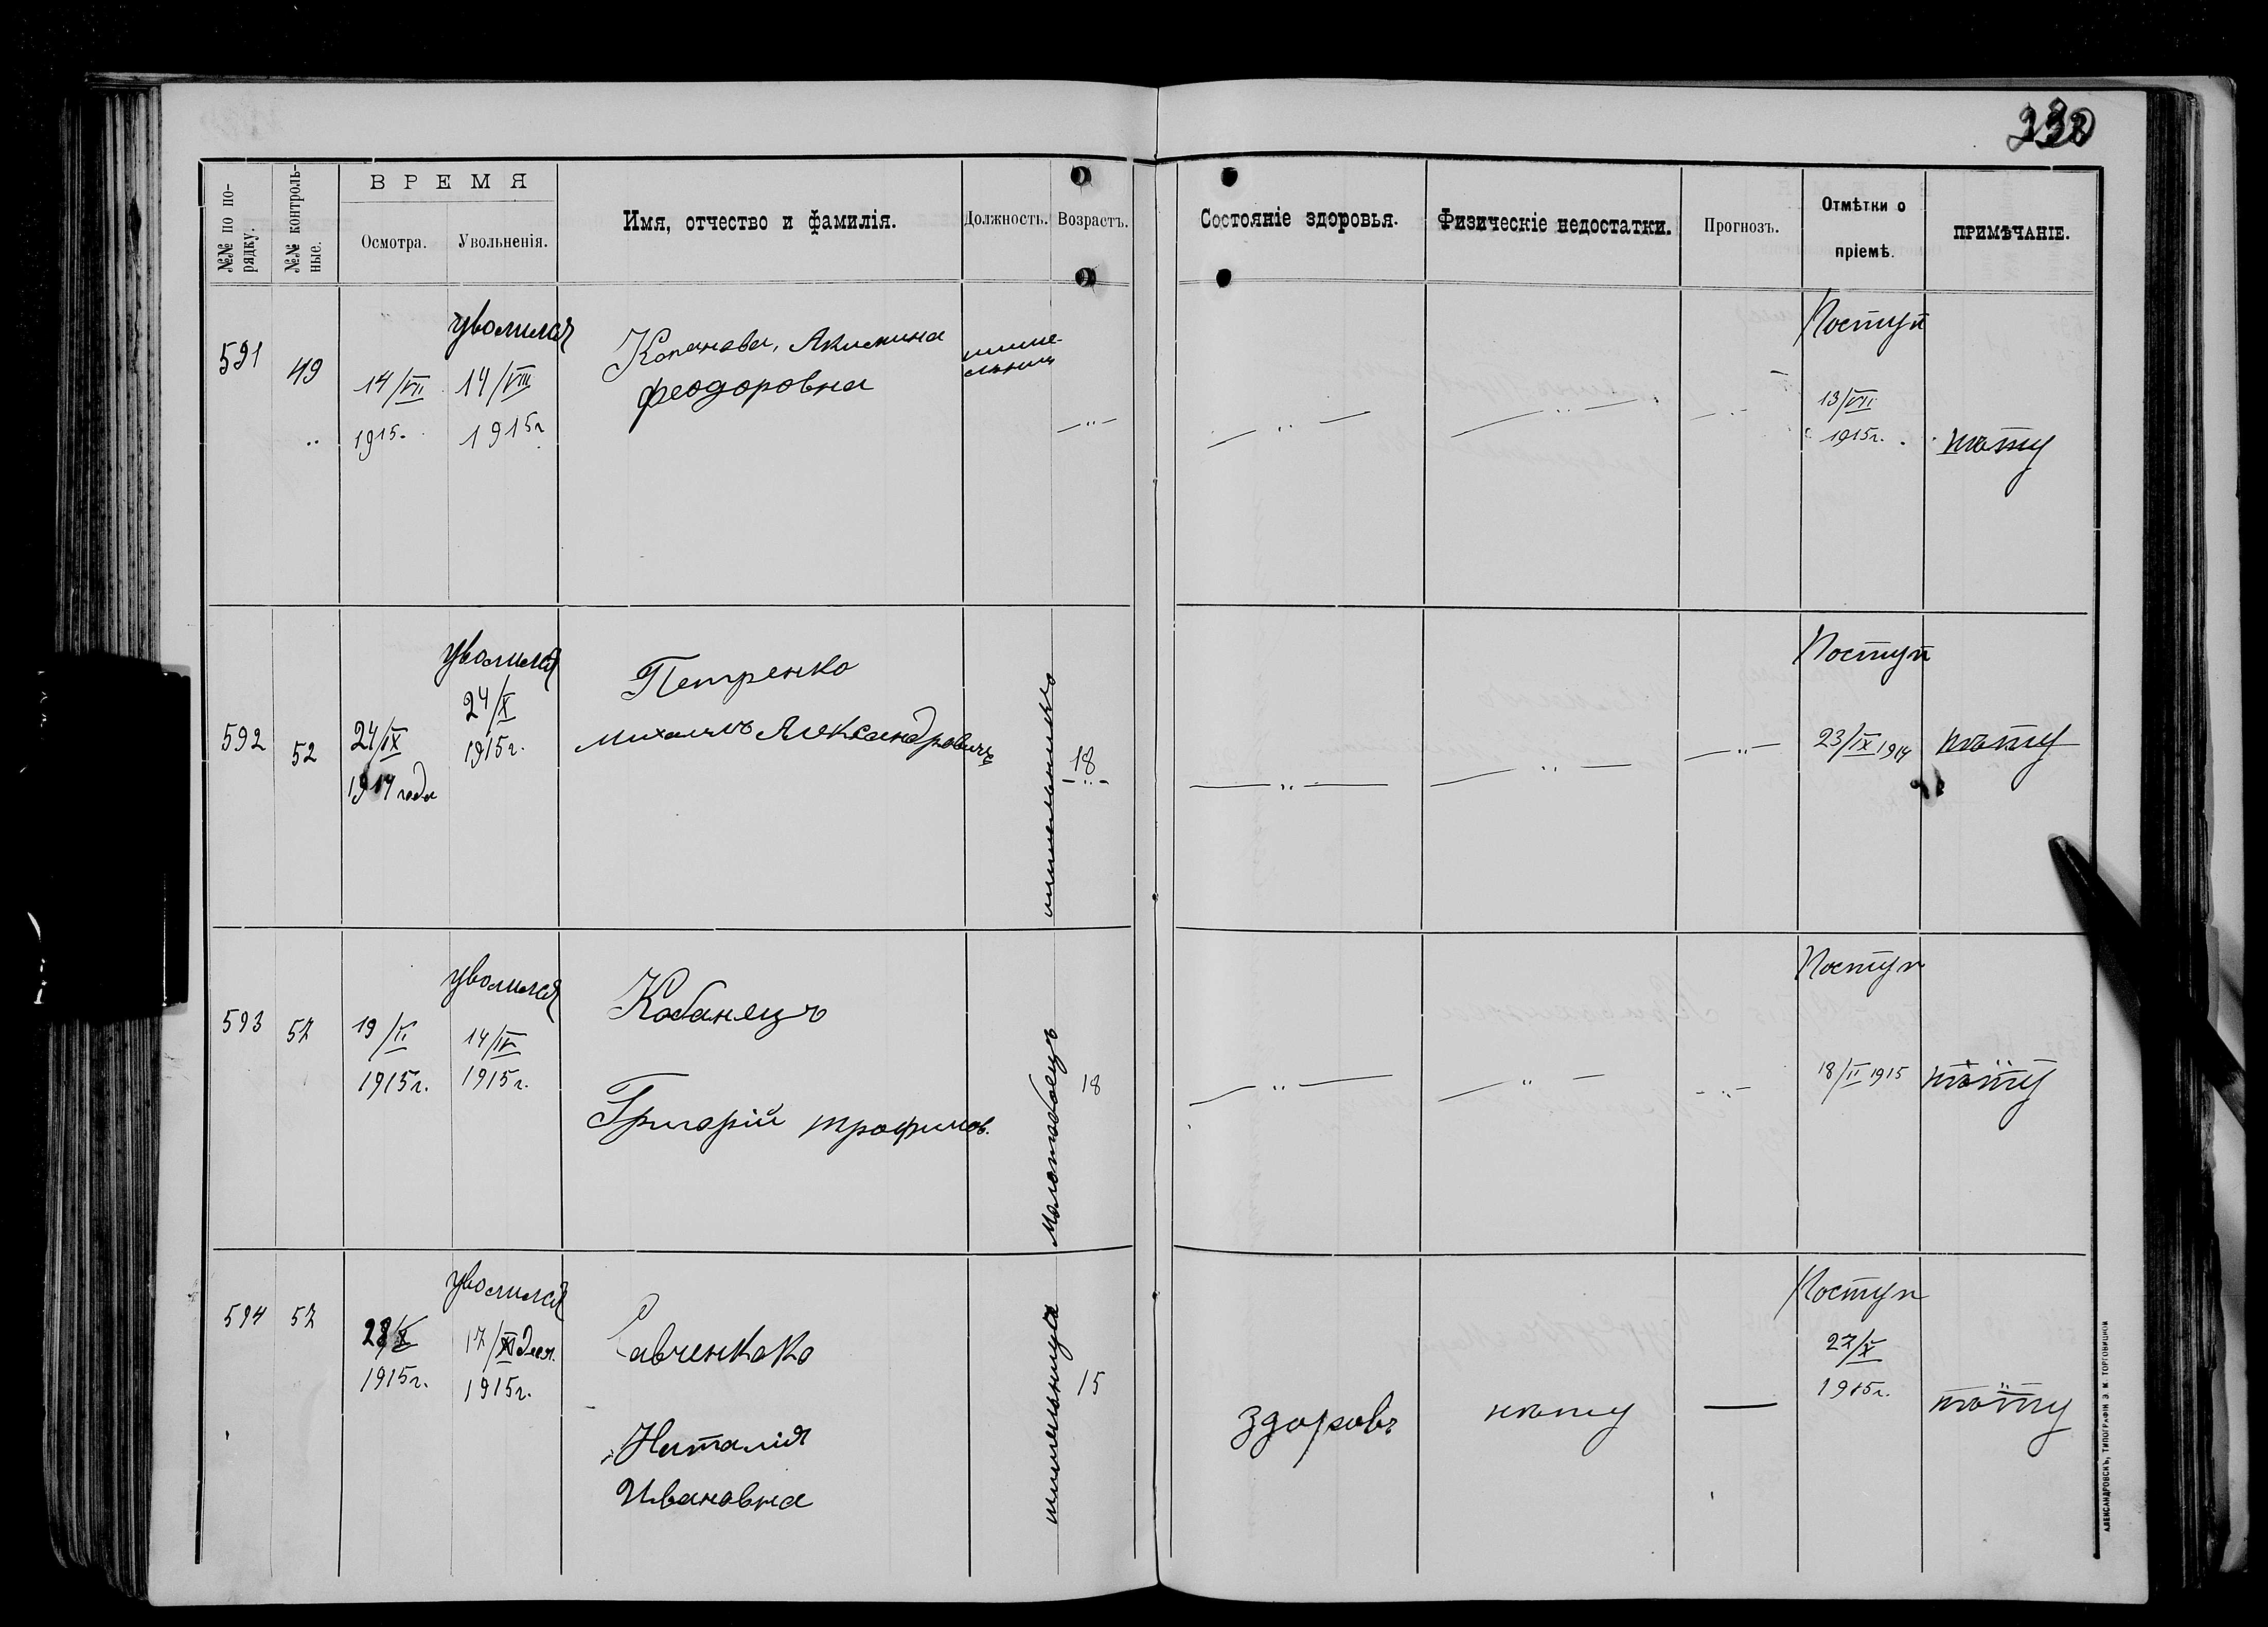 №№ по по-
рядку.
№№ контроль-
ные.
ВРЕМЯ
Осмотра.
Увольненія.
Имя, отчество и фамилія.
Должность.
Возрастъ.
Состояніе здоровья.
Физическіе недостатки.
Прогнозъ.
Отмѣтки о
пріемѣ.
ПРИМѢЧАНІЕ.
591
49
14/VII
1915.
уволилас
14/VIII
1915г
Копанева, Акилина
феодоровна
—„—
—„—
—„—
—„—
Поступ
13/VII
1915г.
нѣту
592
52
24/IX
1914 года
уволился
24/X
1915г.
Петренко
михаилъ Александровичъ
18
—„—
—„—
—„—
—„—
Поступ
23/IX 1914
нѣту
593
57
19/II
1915г.
уволился
14/IV
1915г.
Кобанецъ
Григорій трофимов.
Молотобоецъ
18
—„—
—„—
—„—
Поступ
18/II 1915
нѣту
594
57
28/X
1915г.
уволился
17/XI
1915г.
Савченкоко
Наталія
Ивановна
15
здоровъ
нѣту
—
Поступ
27/X
1915г.
нѣту
АЛЕКСАНДРОВСКЪ, ТИПОГРАФІЯ Э. М. ТОРГОВИЦКОЙ